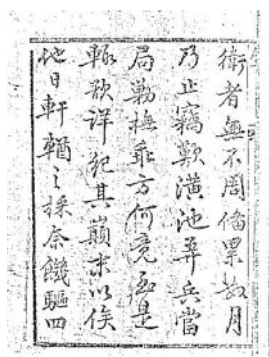 衛者無不周偹累數月
乃止竊歎潢池弄兵當
局勦撫乖方何竟至是
輙欲詳紀其巔末以俟
他日軒輶之採奈饑驅四